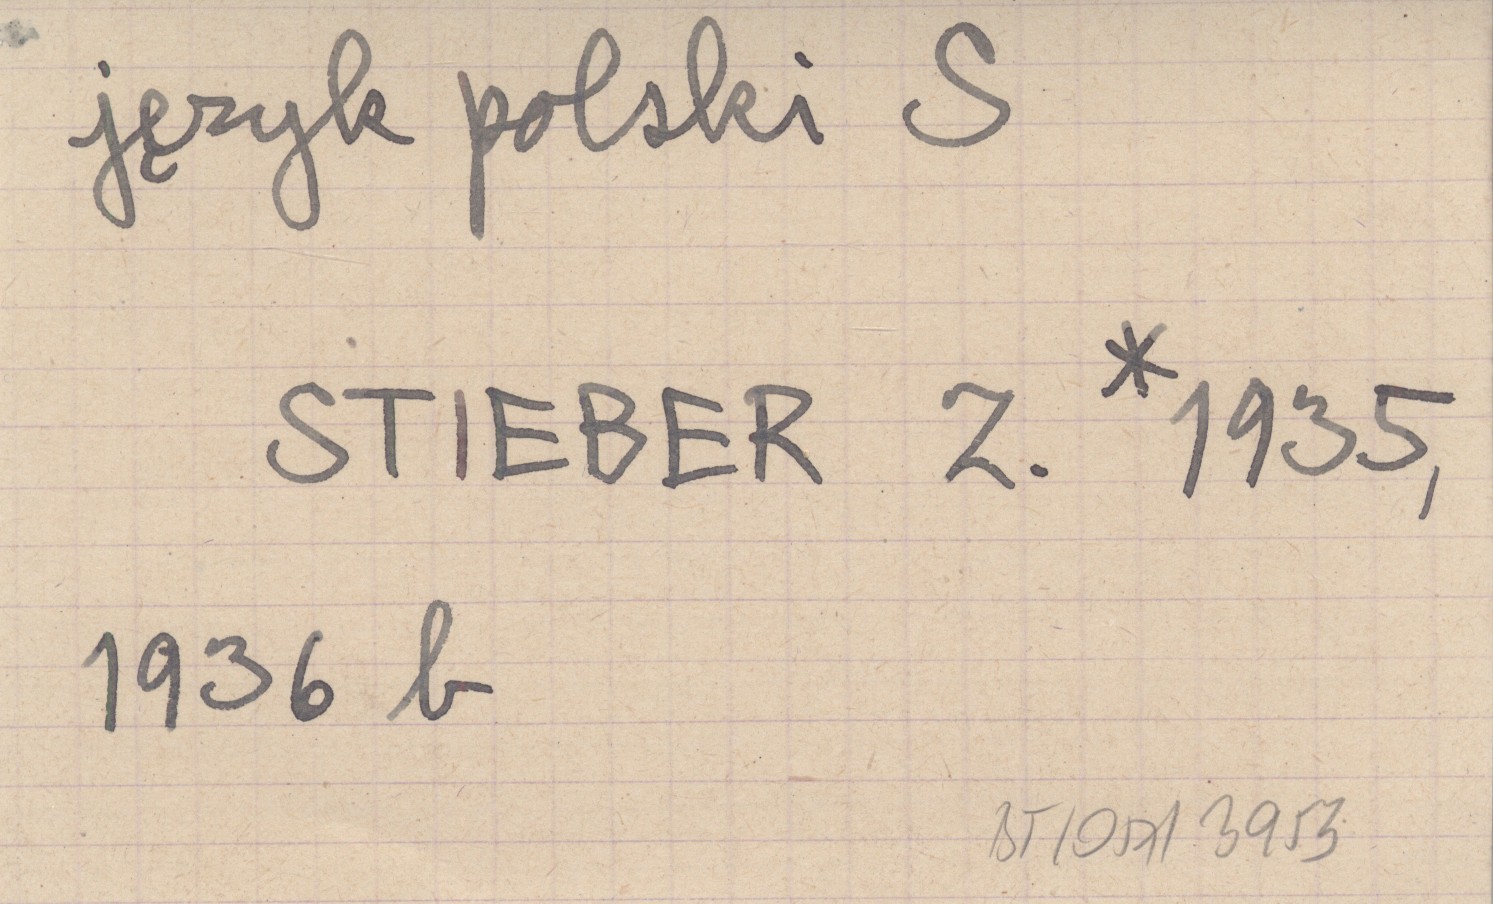 język polski S
STIEBER Z. *1935,
1936 b
3953